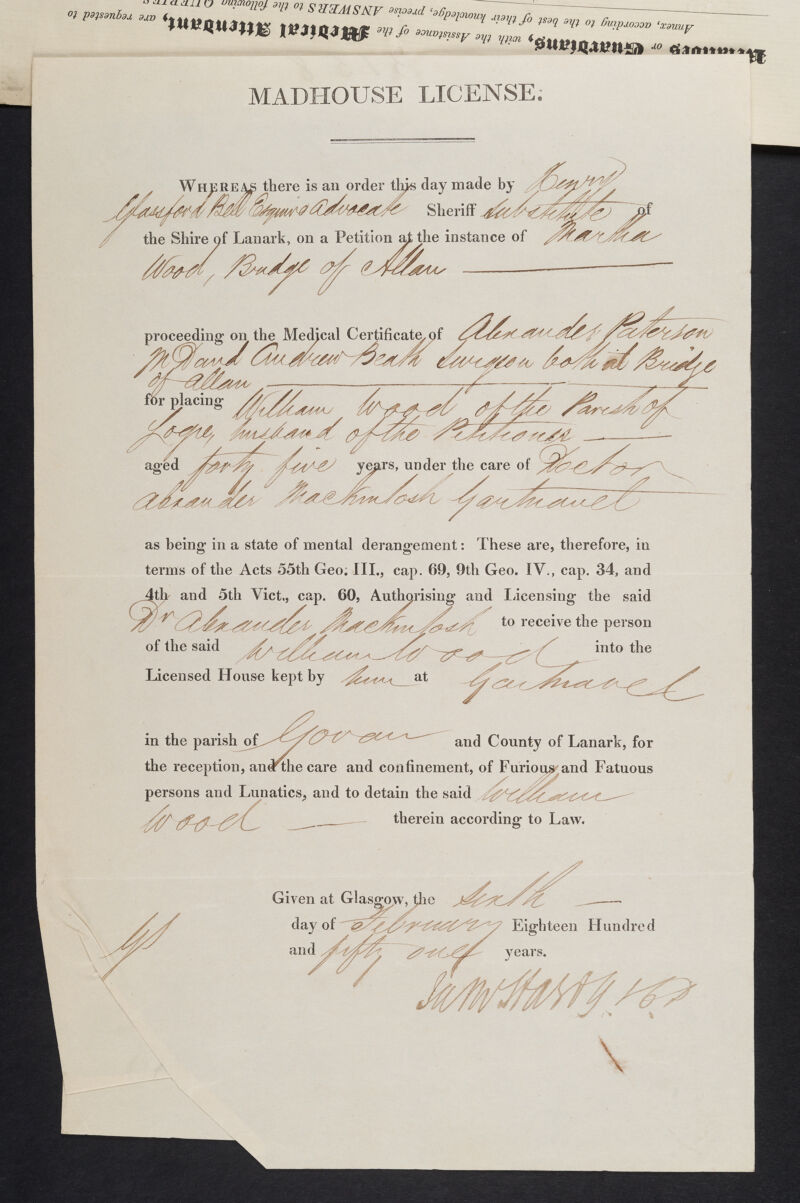 Relatives or Guardians, with the Assistance of the Medical Attendant, are requested to
Annex, according to the best of their knowledge, precise ANSWERS to the following QUERIES
MADHOUSE LICENSE.
WHEREAS there is an order this day made by Henry
Glassford Bell Esquire Advocate Sheriff Substitute of
the Shire of Lanark, on a Petition at the instance of Martha
Wood, Bridge of Allan
proceeding on the Medical Certificate of Alexander Paterson
M D and Andrew Beath Surgeon both at Bridge
of Allan
for placing William Wood of the Parish of
Logie, husband of the Petitioner
aged forty five years, under the care of Doctor
Alexander Mackintosh Gartnavel
as being in a state of mental derangement: These are, therefore, in
terms of the Acts 55th Geo. III., cap. 69, 9th Geo. IV., cap. 34, and
4th and 5th Vict., cap. 60, Authorising and Licensing the said
Dr Alexander Mackintosh to receive the person
of the said William Wood into the
Licensed House kept by him at Gartnavel
in the parish of Govan and County of Lanark, for
the reception, and the care and confinement, of Furious and Fatuous
persons and Lunatics, and to detain the said William
Wood therein according to Law.
Given at Glasgow, the Sixth
day of February Eighteen Hundred
and fifty one years.